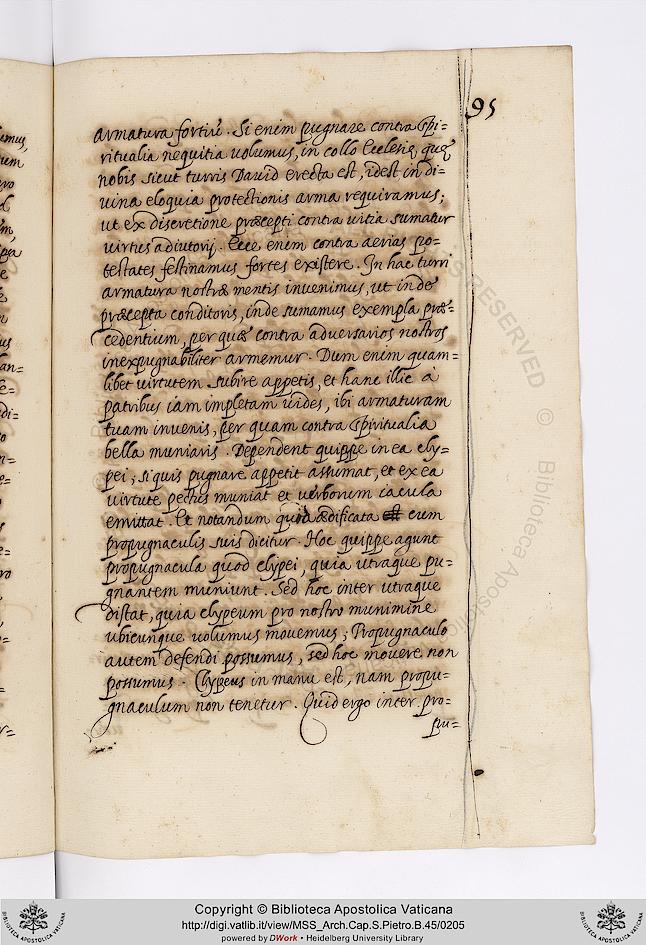 95
armatura fortiũ. Si enim pugnare contra spi=
ritualia nequitia uolumus, in collo Ecclesię, quę
nobis sicut turris Dauid erecta est, idest in di=
uina eloquia protectionis arma requiramus;
ut ex discretione præcepti contra uitia sumatur
uirtus adiutorij. Ecce enim contra aerias po=
testates festinamus fortes existere. In hac turri
armatura nostræ mentis inuenimus, ut inde
præcepta conditoris, inde sumamus exempla præ=
cedentium, per quæ contra aduersarios nostros
inexpugnabiliter armemur. Dum enim quam=
libet uirtutem subire appetis, et hanc illic à
patribus iam impletam uides, ibi armaturam
tuam inuenis, per quam contra spiritualia
bella muniaris. Dependent quippe in ea cly=
pei; si quis pugnare appetit assumat, et ex ea
uirtute pectus muniat et uerborum iacula
emittat. Et notandum quòd ædificata cum
propugnaculis suis dicitur. Hoc quippe agunt
propugnacula quod clypei, quia utraque pu=
gnantem muniunt. Sed hoc inter utraque
distat, quia clypeum pro nostro munimine
ubicunque uolumus mouemus; Propugnaculo
autem defendi possumus, sed hoc mouere non
possumus. Clypeus in manu est, nam propu=
gnaculum non tenetur. Quid ergo inter pro=
pu=
RESERVED ©
Biblioteca Apostolica
Copyright © Biblioteca Apostolica Vaticana
http://digi.vatlib.it/view/MSS_Arch.Cap.S.Pietro.B.45/0205
powered by DWork • Heidelberg University Library